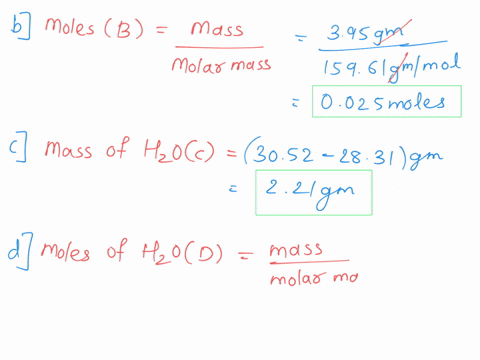 b] Moles (B) = Mass / Molar mass = 3.95 gm / 159.61 gm/mol
= 0.025 moles
c] Mass of H2O(C) = (30.52 - 28.31) gm
= 2.21 gm
d] Moles of H2O(D) = mass / molar ma